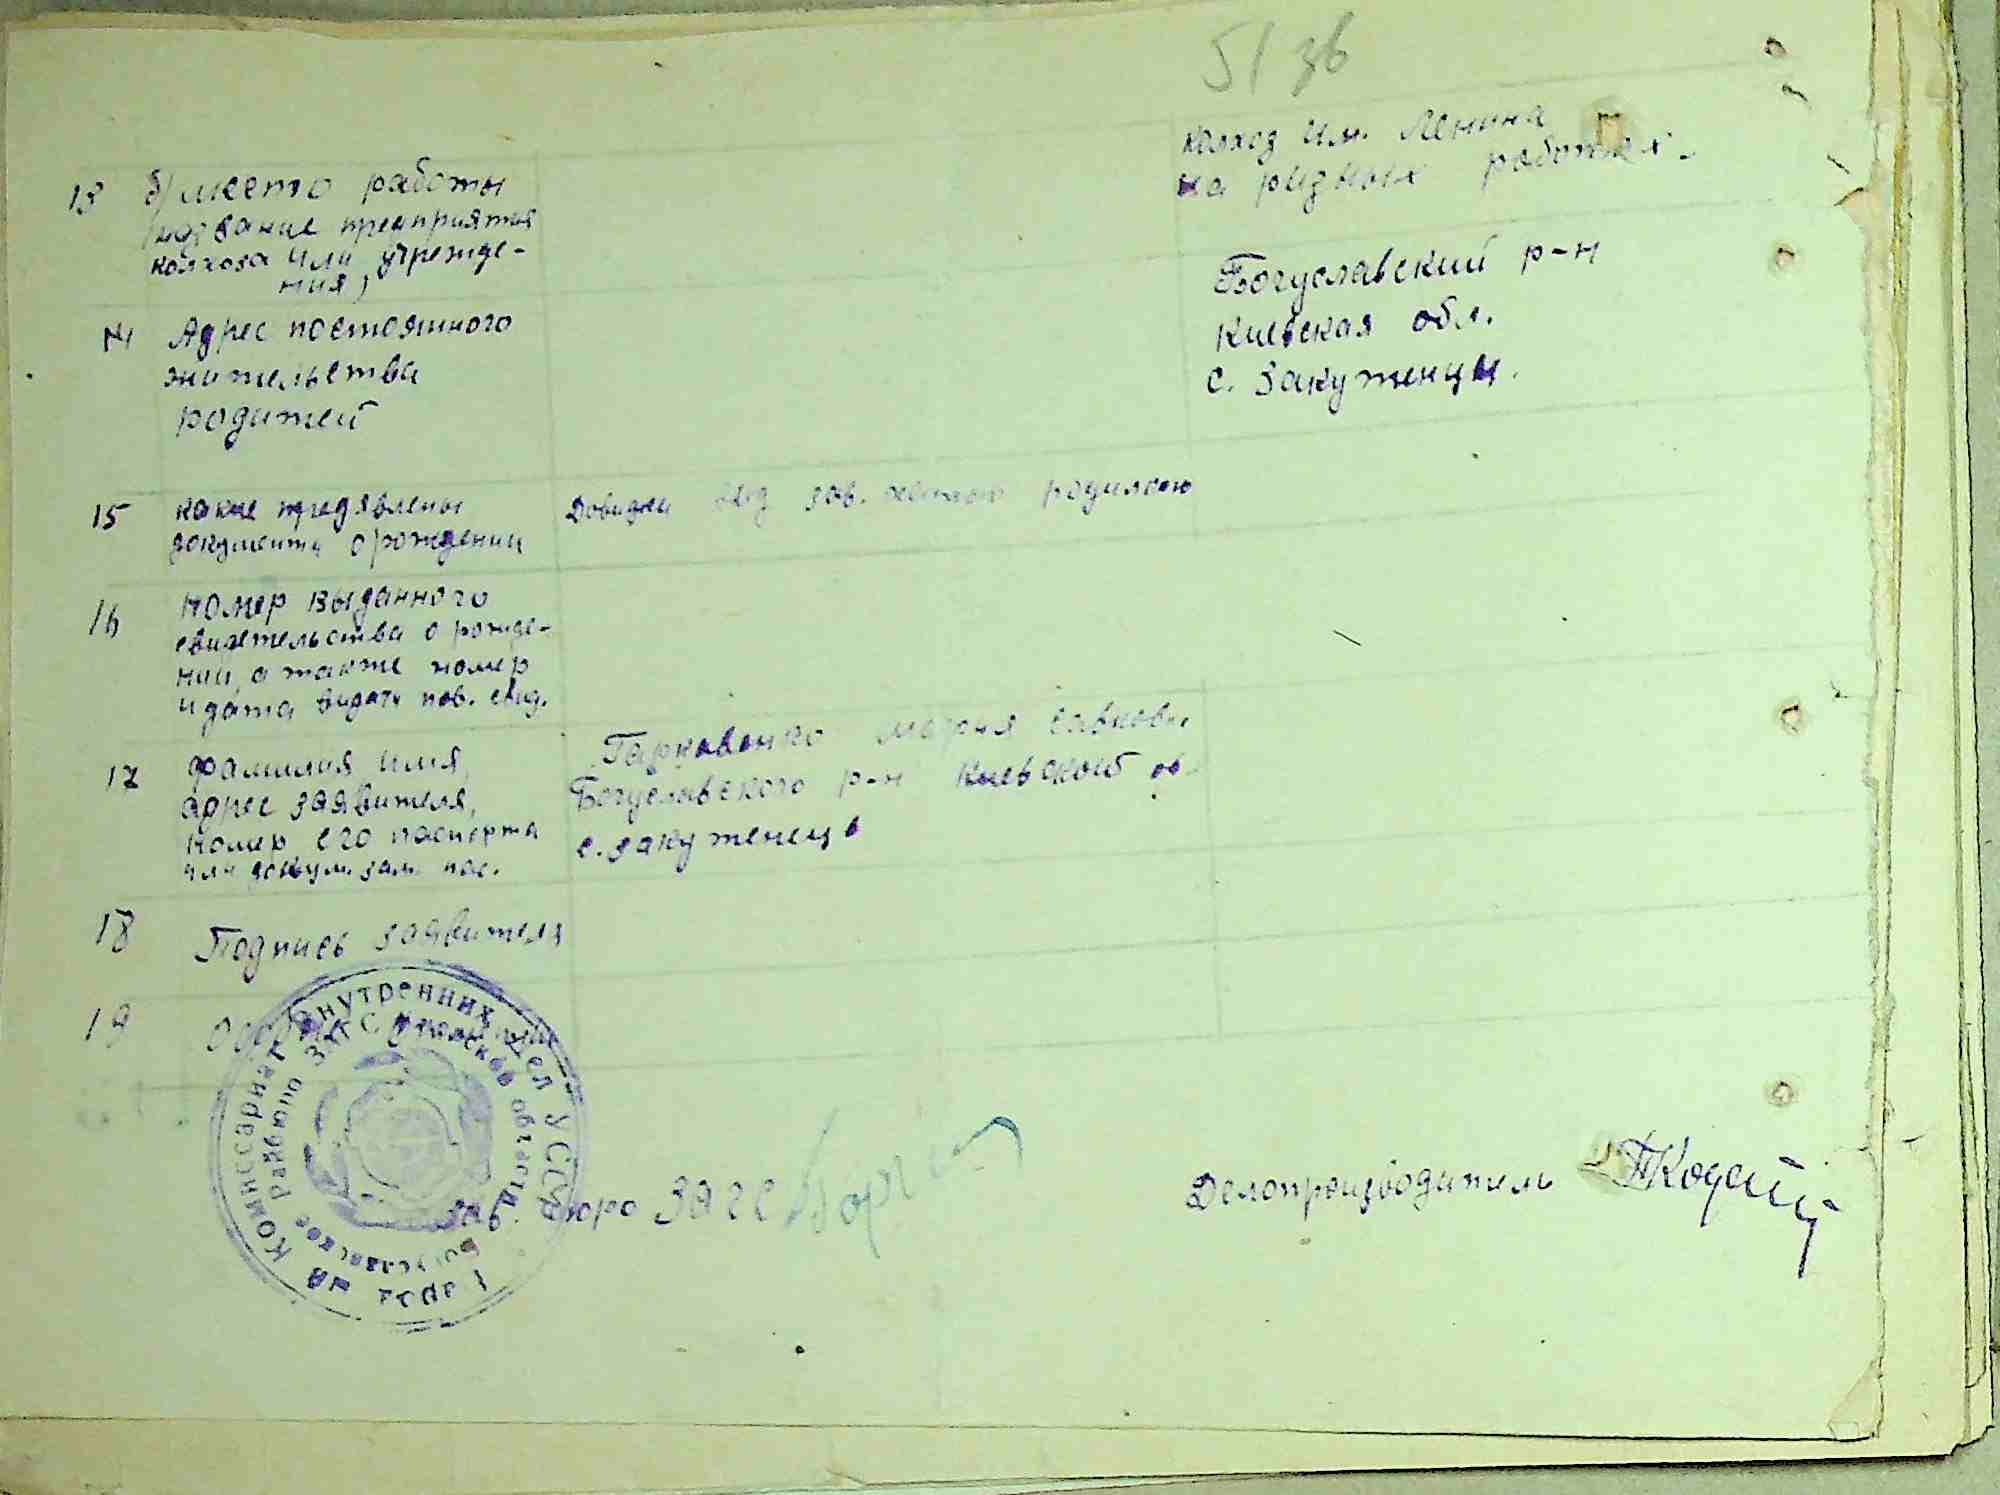 51 зв
13 б) место работы
название предприятия
колхоза или учрежде-
ния)
колхоз им. Ленина
на разных работах.
14 Адрес постоянного
жительства
родителей
Богуславский р-н
Киевская обл.
с. Закутенцы.
15 какие предявлены
документы о рождении
Довидки зав. родилось
16 Номер выданного
свидетельства о рожде-
нии, а также номер
и дата видачи пов. свид.
17 фамилия имя,
адрес заявителя,
номер его паспорта
или докум. зам. пас.
Мария Савков.
Богуславского р-н Киевской об.
с. Закутенец
18 Подпись заявителя
19
Народный Комиссариат Внутренних Дел УССР
Богуславское райбюро ЗАГС Киевской области
Зав. бюро ЗАГС
Делопроизводитель